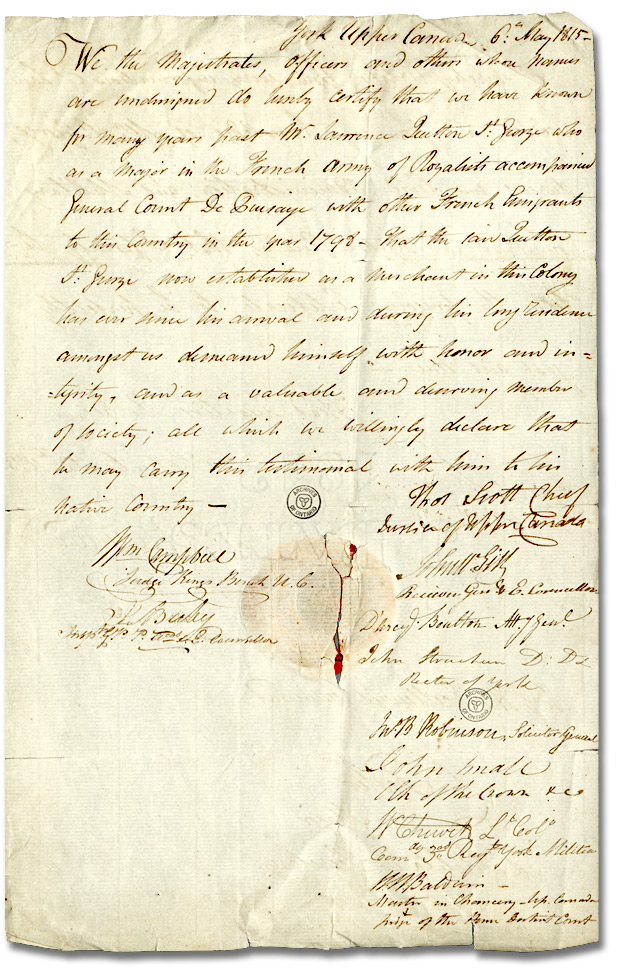 York Upper Canada 6th May 1815-
We the Magistrates, Officers and others whose names
are undersigned do hereby certify that we have known
for many years past Mr. Lawrence Quetton St. George who
as a Major in the French Army of Royalists accompanied
General Count De Puisaye with other French Emigrants
to this Country in the year 1798 - that the said Quetton
St. George now established as a Merchant in this Colony
has ever since his arrival and during his long residence
amongst us demeaned himself with honor and in=
=tegrity, and as a valuable and deserving member
of society; all which we willingly declare that
he may carry this testimonial with him to his
native Country -
Thos Scott Chief
Justice of Upper Canada
Wm Campbell
Judge Kings Bench U.C.
Receiver Genl & E. Councillor
E. Councillor
D'arcy Boulton Atty Genl.
John Strachan D: D:
Rector of York
Jno B Robinson, Solicitor General
John Small
Clk of the Crown &c
W Chewett Lt Coll
Comdg 3rd Regt York Militia
W W Baldwin -
Master in Chancery - Up. Canada
Judge of the Home District Court
ARCHIVES
OF ONTARIO
ARCHIVES
OF ONTARIO